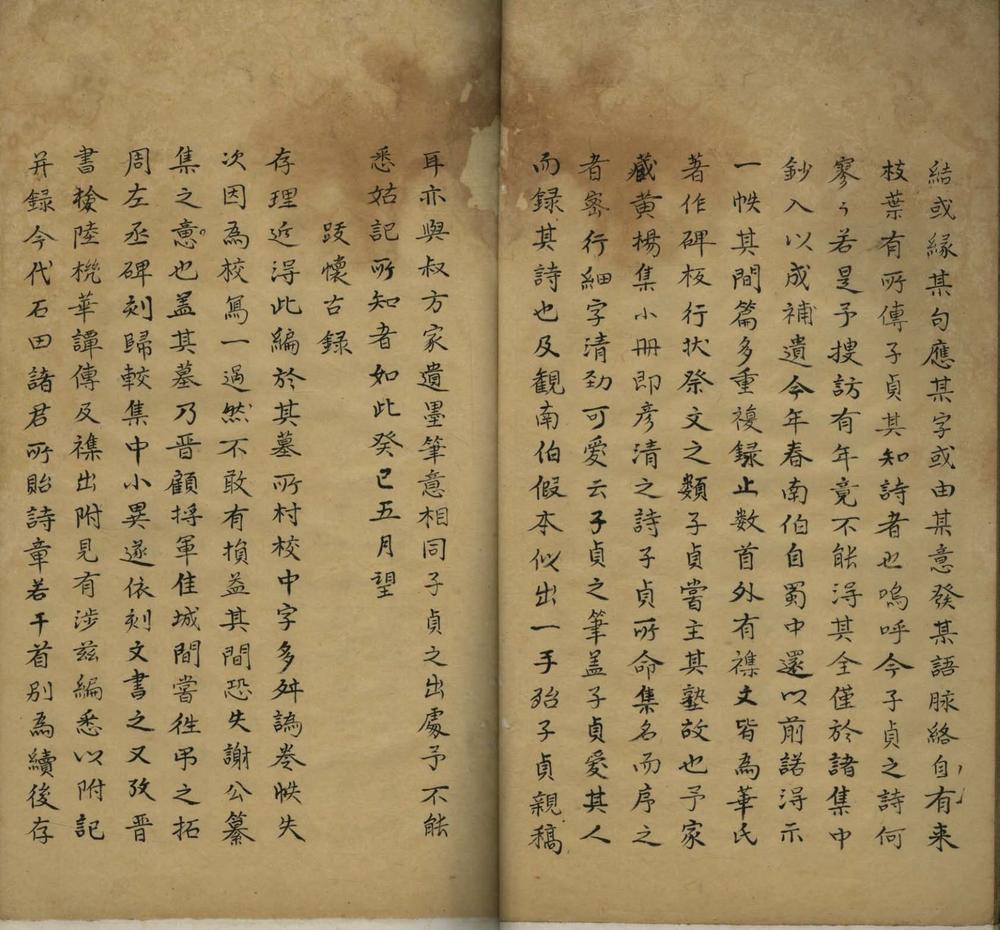 結或緣某句應某字或由某意發某語脉絡自有来
枝葉有所傳子貞其知詩者也嗚呼今子貞之詩何
寥々若是予搜訪有年竟不能淂其全僅於諸集中
鈔入以成補遺今年春南伯自蜀中還以前諾淂示
一帙其間篇多重複録止数首外有襍文皆為華氏
著作碑板行状祭文之類子貞嘗主其塾故也予家
藏黄楊集小冊即彦清之詩子貞所命集名而序之
者密行細字清劲可愛云子貞之筆盖子貞愛其人
而録其詩也及観南伯假本似出一手殆子貞親稿
耳亦與叔方家遺墨筆意相同子貞之出處予不能
悉姑記所知者如此癸已五月望
跋懷古録
存理近淂此編於其墓所村校中字多舛譌卷帙失
次因為校寫一過然不敢有損益其間恐失謝公纂
集之意也盖其墓乃晉顧將軍佳城間嘗徃弔之拓
周左丞碑刻歸較集中小異遂依刻文書之又攷晉
書榆陸機華譚傳及襍出附見有涉兹編悉以附記
并録今代石田諸君所貽詩章若干首别為續後存